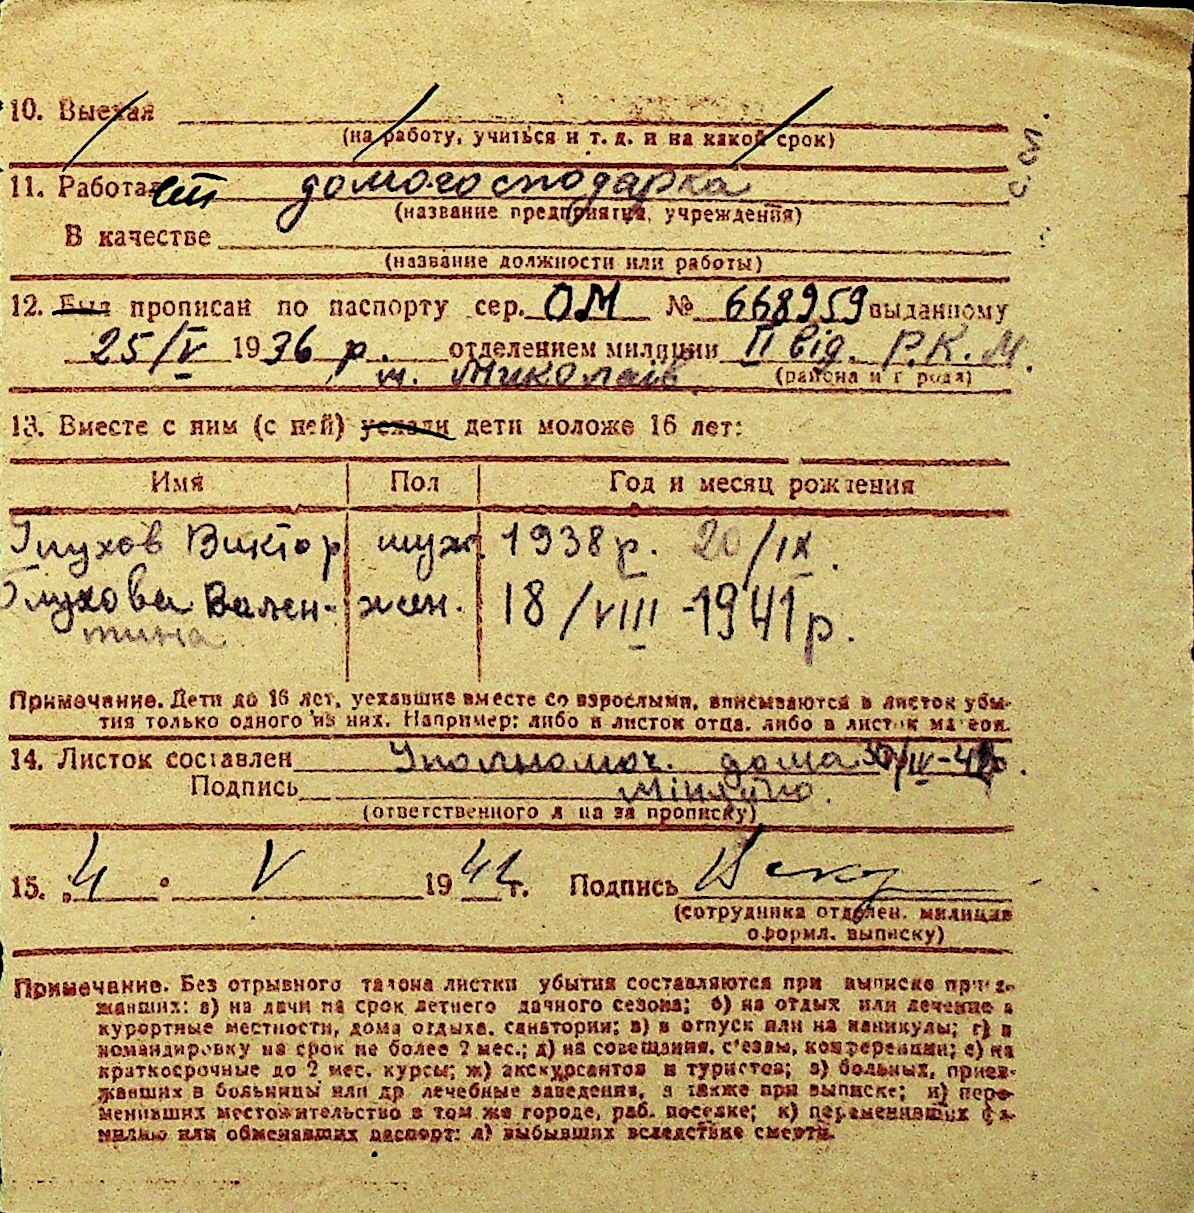 10. Выехал
(на работу, учиться и т. д. и на какой срок)
11. Работает домогосподарка
(название предприятия, учреждения)
В качестве
(название должности или работы)
12. Был прописан по паспорту сер. ОМ № 668959 выданному
25/V 1936 р. отделением милиции II від. Р.К.М.
м. Миколаїв (района и города)
13. Вместе с ним (с ней) уехали дети моложе 16 лет:
Имя Пол Год и месяц рождения
Глухов Віктор муж. 1938 р. 20/IX.
Глухова Вален- жен. 18/VIII -1941 р.
тина
Примечание. Дети до 16 лет, уехавшие вместе со взрослыми, вписываются в листок убы-
тия только одного из них. Например: либо в листок отца, либо в листок матери.
14. Листок составлен Уполномоч. дома 30/IV-42
Подпись
(ответственного лица за прописку)
15. „4" V 1942 г. Подпись
(сотрудника отделен. милиции
оформл. выписку)
Примечание. Без отрывного талона листки убытия составляются при выписке приез-
жавших: а) на дачи на срок летнего дачного сезона; б) на отдых или лечение в
курортные местности, дома отдыха, санатории; в) в отпуск или на каникулы; г) в
командировку на срок не более 2 мес.; д) на совещания, с'езды, конференции; е) на
краткосрочные до 2 мес. курсы; ж) экскурсантов и туристов; з) больных, приез-
жавших в больницы или др лечебные заведения, а также при выписке; и) пере-
менивших местожительство в том же городе, раб. поселке; к) переменивших фа-
милию или обменявших паспорт: л) выбывших вследствие смерти.